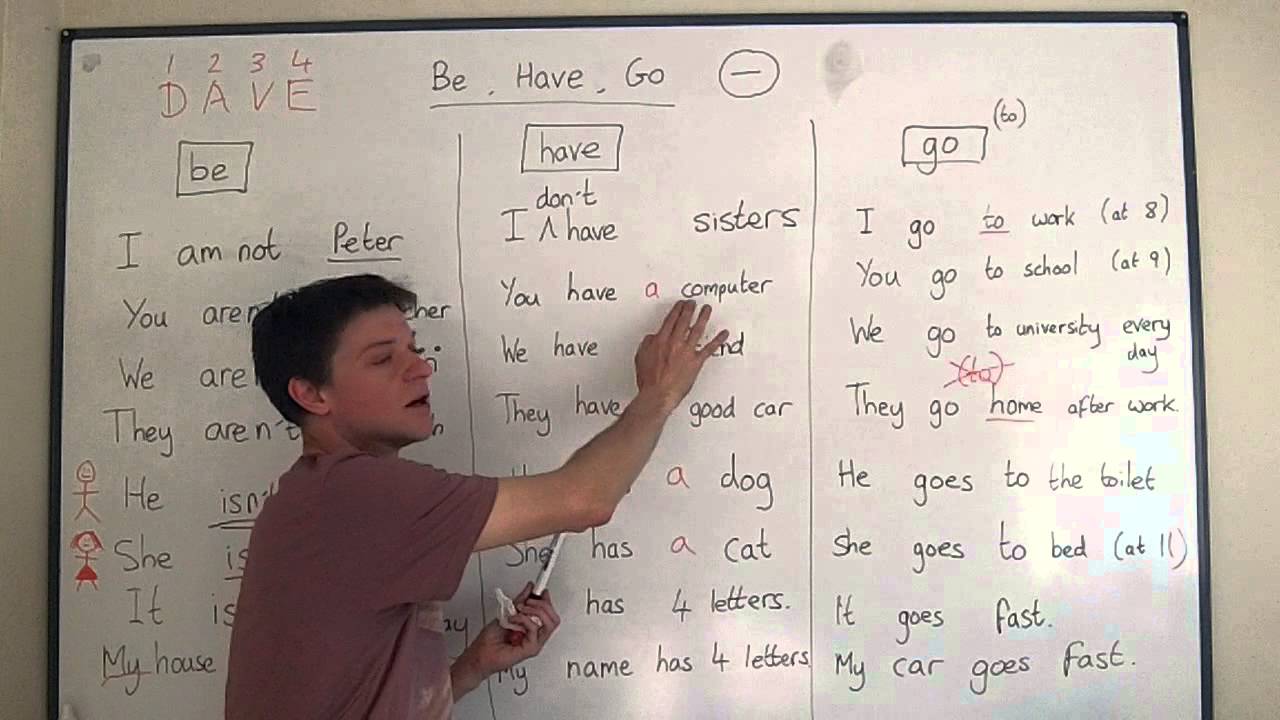 1 2 3 4
DAVE
Be, Have, Go −
be
I am not Peter
You
We
They aren't
He
She
It
My house
have
don't
I ʌ have sisters
You have a computer
We have
They have good car
a dog
She has a cat
has 4 letters.
My name has 4 letters
go (to)
I go to work (at 8)
You go to school (at 9)
We go to university every
day
(to)
They go home after work.
He goes to the toilet
She goes to bed (at 11)
It goes fast.
My car goes fast.